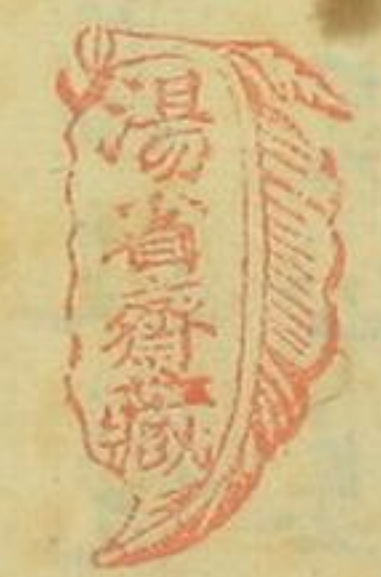 湯省齋藏